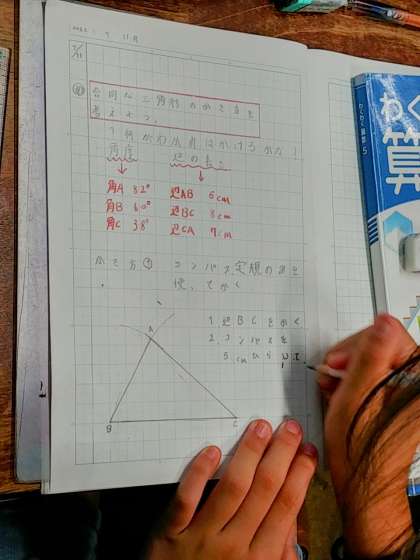 7/11
合同な三角形のかき方を
考えよう。
何がわかればかけるかな!
角度 辺の長さ
角A 82° 辺AB 5cm
角B 60° 辺BC 8cm
角C 38° 辺CA 7cm
かき方① コンパス定規のみを
使ってかく
1 辺BCをかく
2 コンパスを
5cmひら
A
B
C
わくわく算数5
わく
算